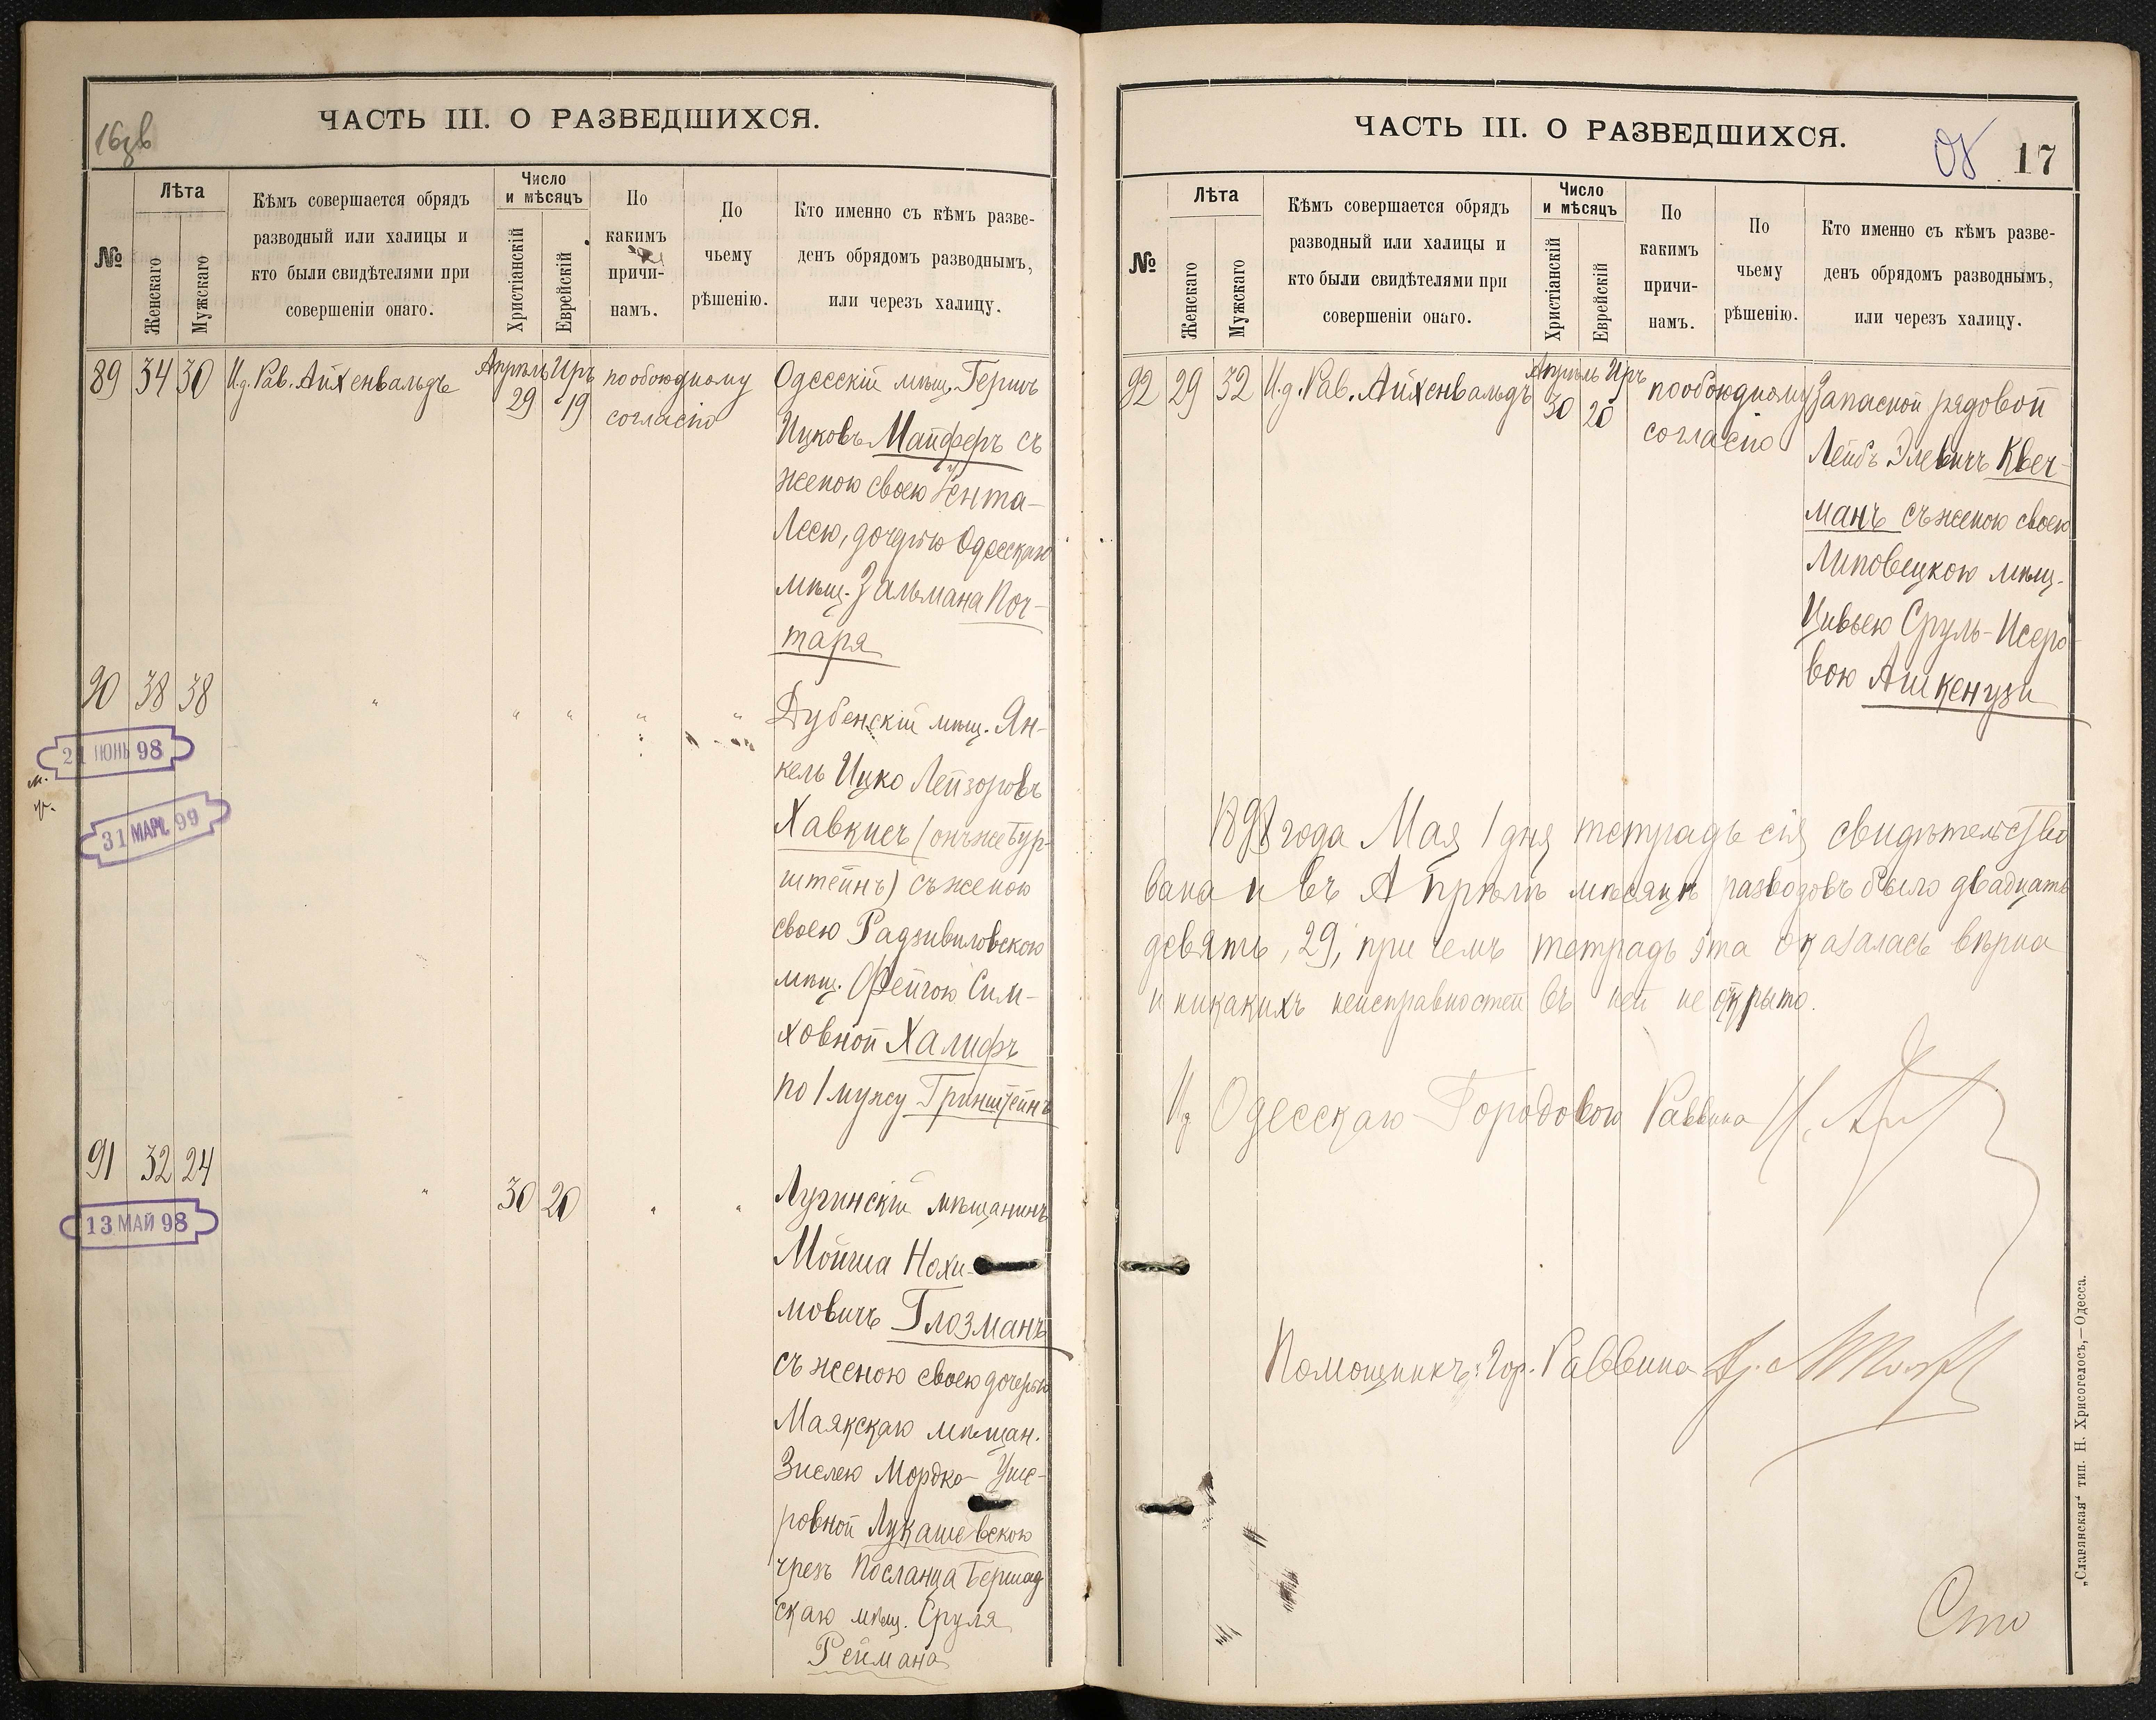 16 зв
ЧАСТЬ III. О РАЗВЕДШИХСЯ.
№
Лѣта
Женскаго
Мужскаго
Кѣмъ совершается обрядъ
разводный или халицы и
кто были свидѣтелями при
совершеніи онаго.
Число
и мѣсяцъ
Христіанскій
Еврейскій
По
какимъ
причи-
намъ.
По
чьему
рѣшенію.
Кто именно съ кѣмъ разве-
денъ обрядомъ разводнымъ,
или черезъ халицу.
89 34 30 И.д. Рав. Айхенвальдъ
Апрѣль Иръ
29 19
по обоюдному
согласію
Одесскій мѣщ. Гершъ
Ицковъ Майферъ съ
женою своею Гента-
Лесю, дочерью Одесскаго
мѣщ. Зальмана Поч-
таря
90 38 38 " " " " "
Дубенскій мѣщ. Ян-
кель Ицко Лейзоровъ
Хавкисъ (онъже Бур-
штейнъ) съ женою
своею Радзивиловскою
мѣщ. Фейгою Сим-
ховной Халифъ
по 1 мужу Гринштейнъ
21 ИЮНЬ 98
31 МАР. 99
91 32 24 " 30 20 " "
Лугинскій мѣщанинъ
Мойша Нохи-
мовичъ Глозманъ
съ женою своею дочерью
Маякскаго мѣщан.
Зислею Мордко-Уше-
ровной Лукашевскою
чрезъ посланца Бершад
скаго мѣщ. Сруля
Реймана
13 МАЙ 98
ЧАСТЬ III. О РАЗВЕДШИХСЯ.
17
№
Лѣта
Женскаго
Мужскаго
Кѣмъ совершается обрядъ
разводный или халицы и
кто были свидѣтелями при
совершеніи онаго.
Число
и мѣсяцъ
Христіанскій
Еврейскій
По
какимъ
причи-
намъ.
По
чьему
рѣшенію.
Кто именно съ кѣмъ разве-
денъ обрядомъ разводнымъ,
или черезъ халицу.
92 29 32 И.д. Рав. Айхенвальдъ
Апрѣль Иръ
30 20
по обоюдному
согласію
Запасной рядовой
Лейбъ Элевичъ Квеч-
манъ съ женою своею
Липовецкою мѣщ.
Цивьею Сруль-Исеро-
вою Ашкенузи
1898 года Мая 1 дня тетрадь сія свидѣтельство
вана и въ Апрѣлѣ мѣсяцѣ разводовъ было двадцать
девять, 29, при чемъ тетрадь эта оказалась вѣрна
и никакихъ неисправностей въ ней не открыто.
И д Одесскаго Городового Раввина
Помощникъ Гор. Раввина
Сто
„Славянская“ тип. Н. Хрисогелосъ,—Одесса.